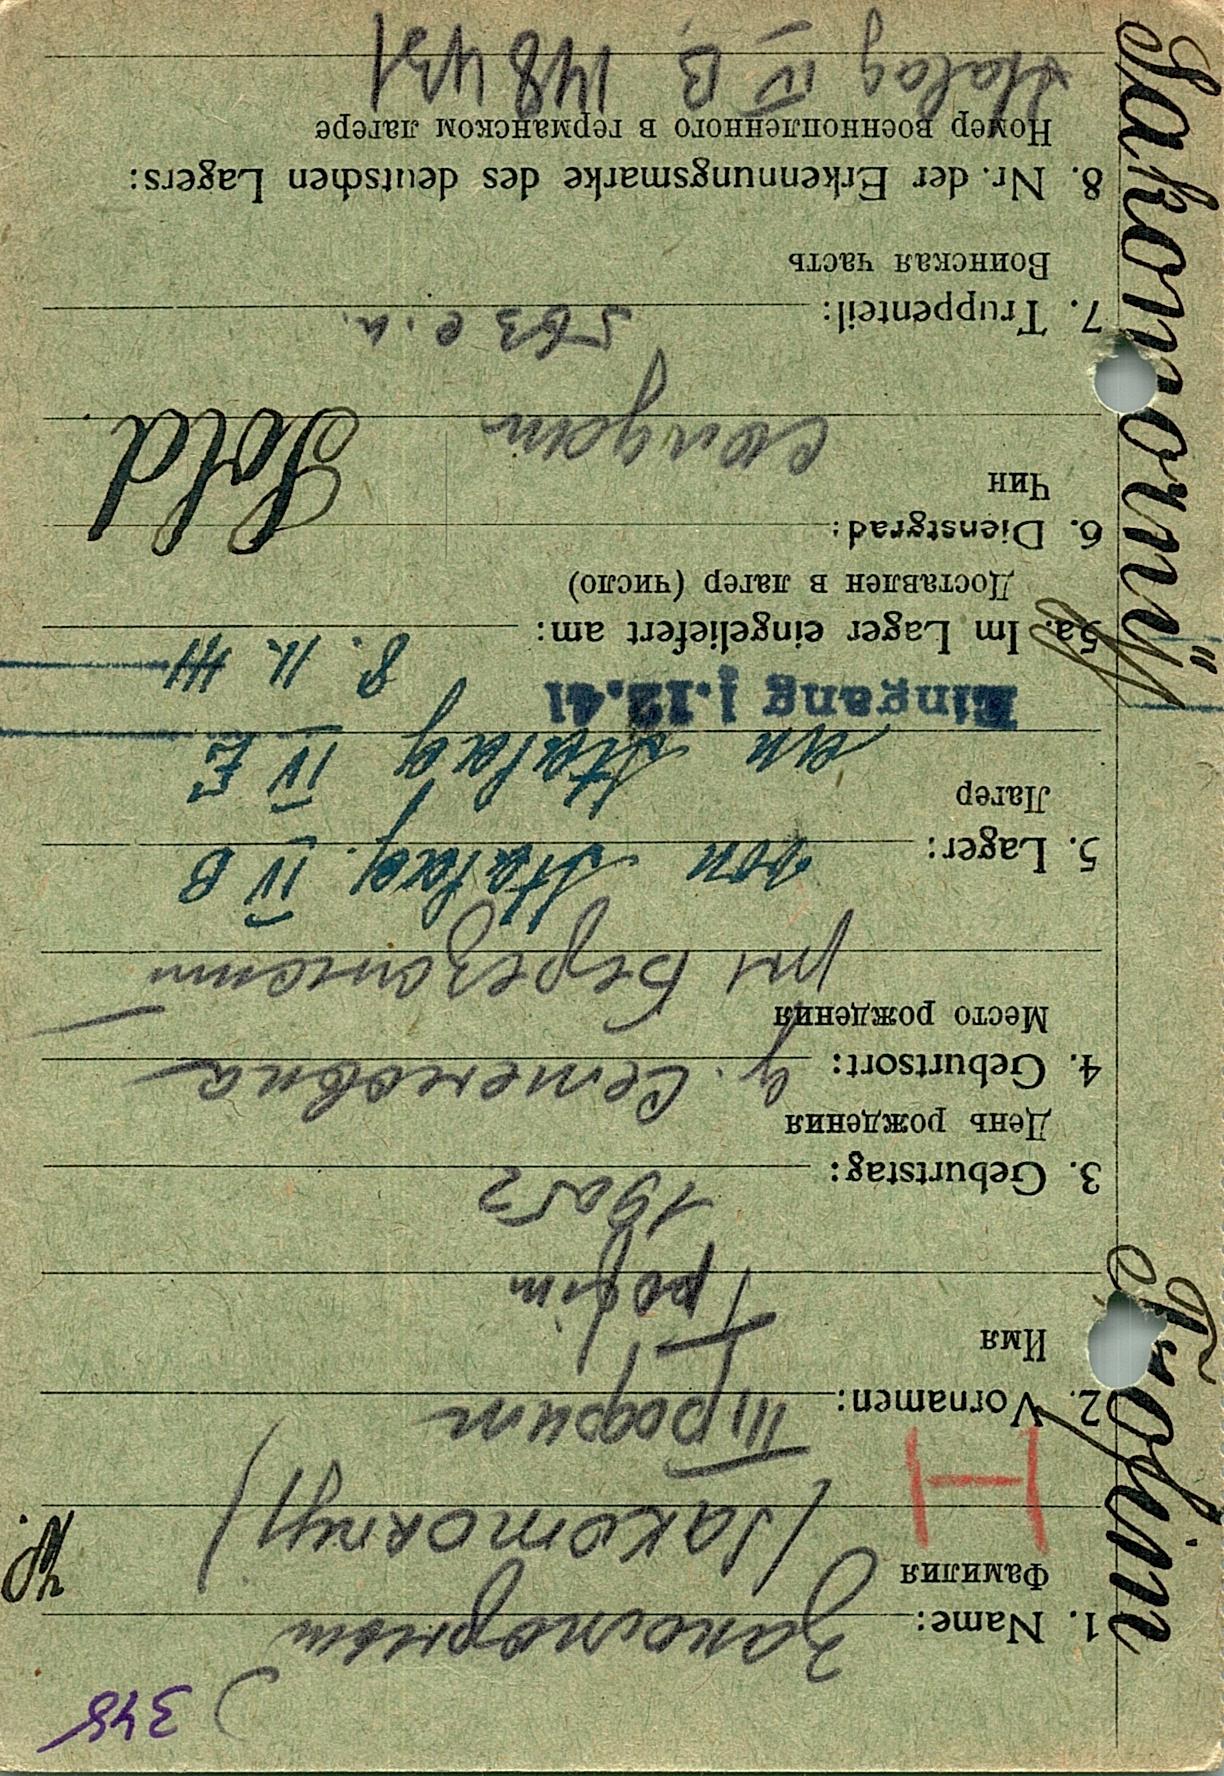 348
1. Name:
Фамилия
(Sakomornyj)
2. Vornamen: Трофим
Имя
Trofim
3. Geburtstag: 1905
День рождения
4. Geburtsort: д. Семеновка
Место рождения
рн
5. Lager: von Stalag. IV B
Лагер
an Stalag IV E
Eingang j.12.41
5a. Im Lager eingeliefert am: 8. 11. 41
Доставлен в лагер (число)
6. Dienstgrad: Sold.
Чин
солдат
7. Truppenteil: 563 с.п.
Воинская часть
8. Nr. der Erkennungsmarke des deutschen Lagers:
Номер военнопленного в германском лагере
Stalag IV B 148431
Trofim